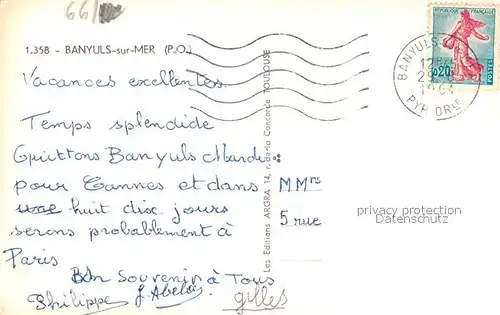 66
1.358 - BANYULS-sur-MER (P.O.)
Vacances excellentes
Temps splendide
Quittons Banyuls Mardi
pour Cannes et dans
une huit dix jours
serons probablement à
Paris
Bon Souvenir à Tous
Philippe J. Abela
gilles
Les Editions ARGRA 14, r. de la Concorde TOULOUSE
MMrs
5 rue
privacy protection
Datenschutz
REPUBLIQUE FRANÇAISE
0,20
POSTES
BANYULS-
12H
PYR ORles